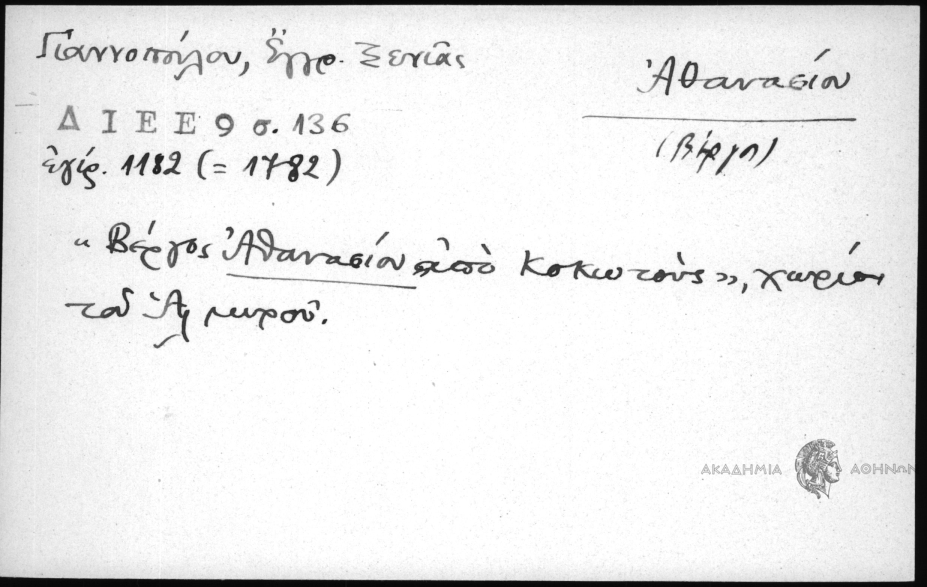 Γιαννοπούλου, Ἔγγρ. Ξενιᾶς
Ἀθανασίου
(Βέργος)
Δ Ι Ε Ε 9 σ. 136
ἐγίρ. 1182 (= 1782)
« Βέργος Ἀθανασίου ἀπὸ Κοκωτοὺς », χωρίον
τοῦ Ἁλμυροῦ.
ΑΚΑΔΗΜΙΑ ΑΘΗΝΩΝ